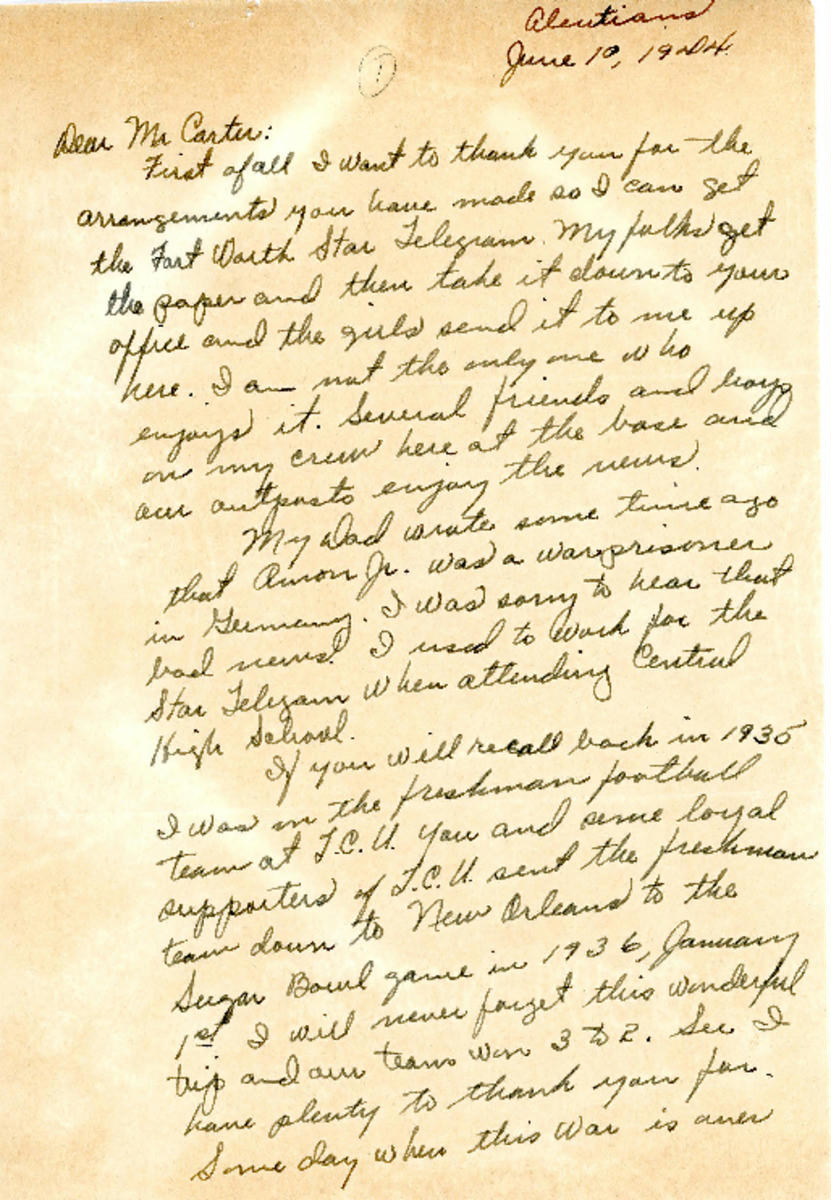 Aleutians
June 10, 1944
1
Dear Mr Carter:
First of all I want to thank you for the
arrangements you have made so I can get
the Fort Worth Star Telegram. My folks get
the paper and then take it down to your
office and the girls send it to me up
here. I am not the only one who
enjoys it. Several friends and boys
on my crew here at the base and
our outposts enjoy the news.
My Dad wrote some time ago
that Amon Jr. was a war prisoner
in Germany. I was sorry to hear that
bad news. I used to work for the
Star Telegam when attending Central
High School.
If you will recall back in 1935
I was on the freshman football
team at T.C.U. You and some loyal
supporters of T.C.U. sent the freshman
team down to New Orleans to the
Sugar Bowl game in 1936, January
1st I will never forget this wonderful
trip and our team won 3 to 2. See I
have plenty to thank you for.
Some day when this War is over